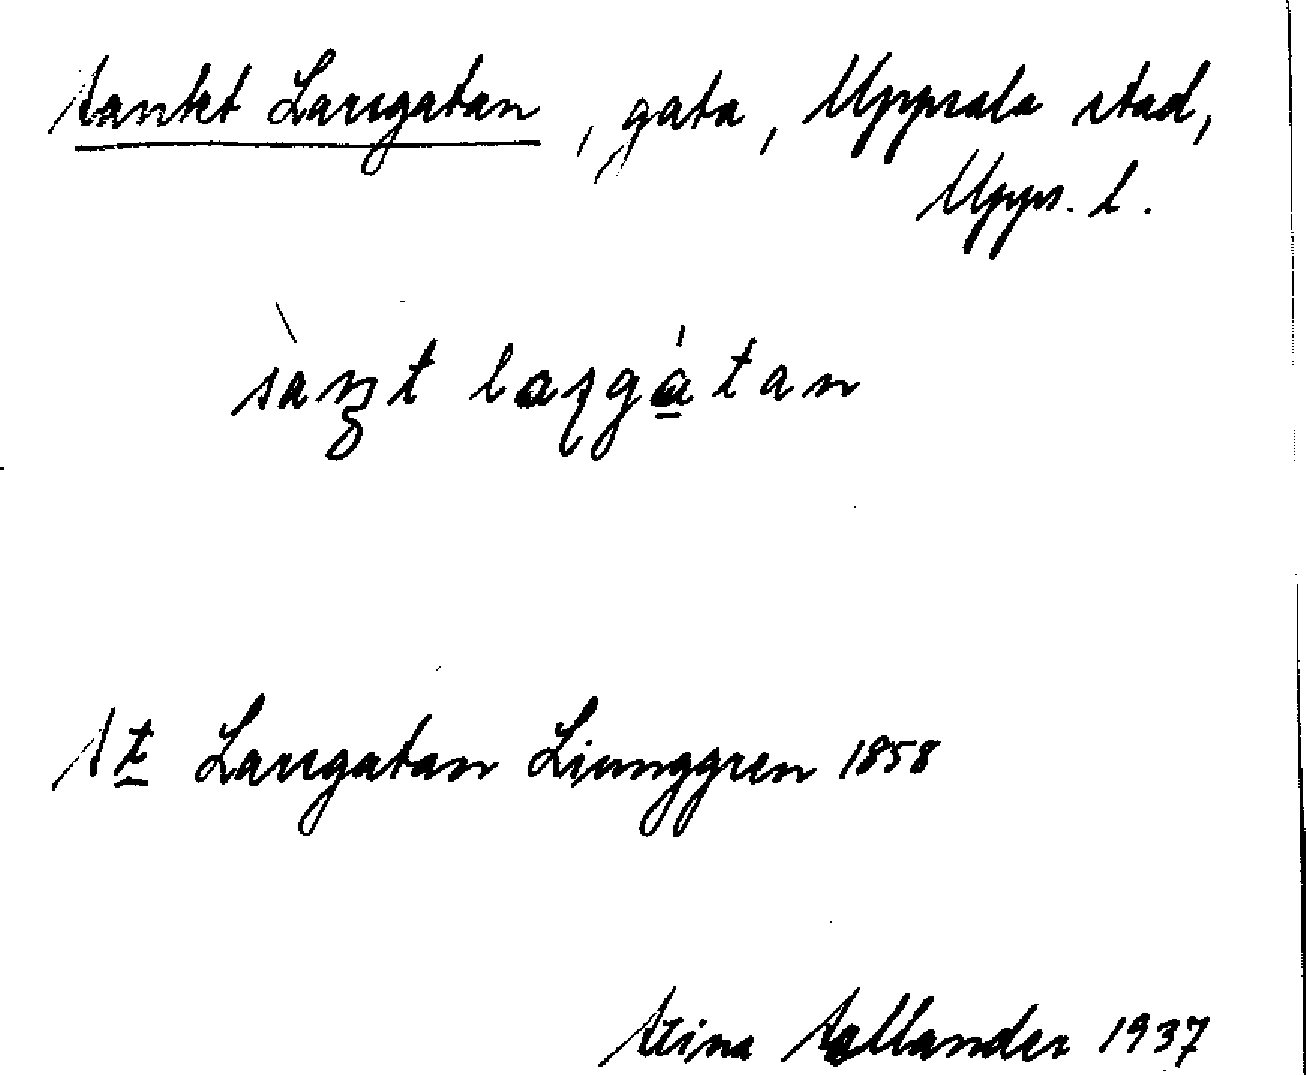 Sankt Larsgatan, gata, Uppsala stad,
Upps. l.
sàŋt laʂgátan
St Larsgatan Liunggren 1858
Stina Sallander 1937